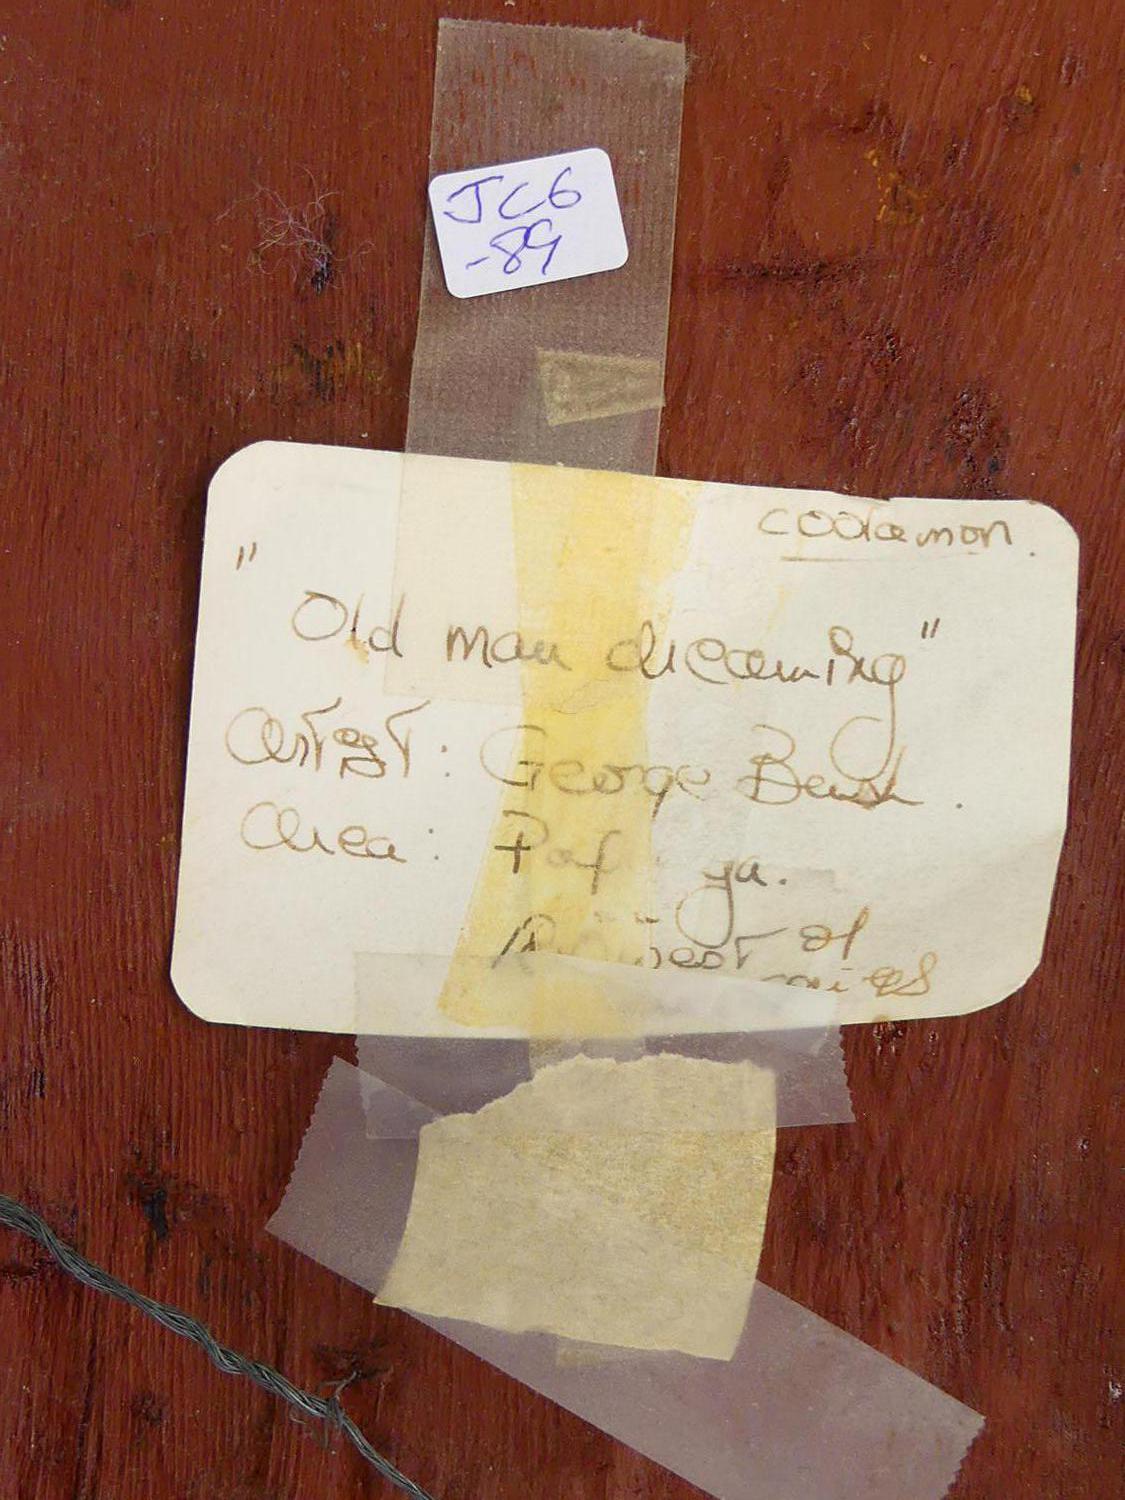 JC6
-89
coolamon.
"Old man dreaming"
Artist: George Bush.
Area: Pap ya.
West of